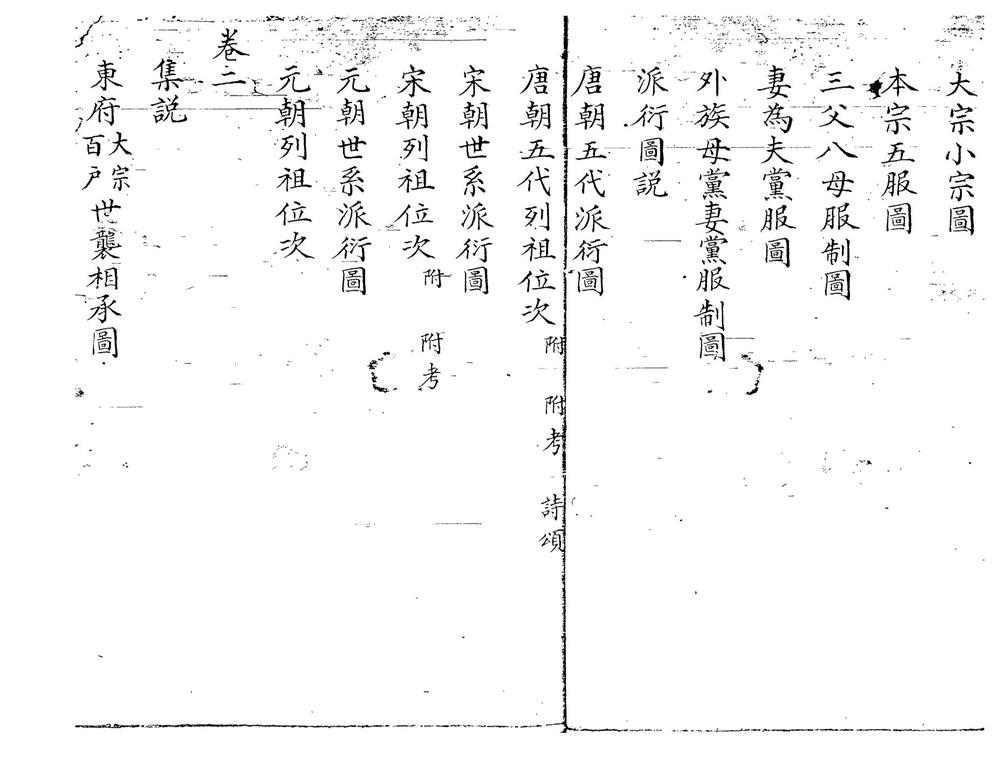 大宗小宗圖
本宗五服圖
三父八母服制圖
妻為夫黨服圖
外族母黨妻黨服制圖
派衍圖説
唐朝五代派衍圖
唐朝五代列祖位次 附 附考 詩頌
宋朝世系派衍圖
宋朝列祖位次 附 附考
元朝世系派衍圖
元朝列祖位次
卷二
集説
東府大宗百户世襲相承圖